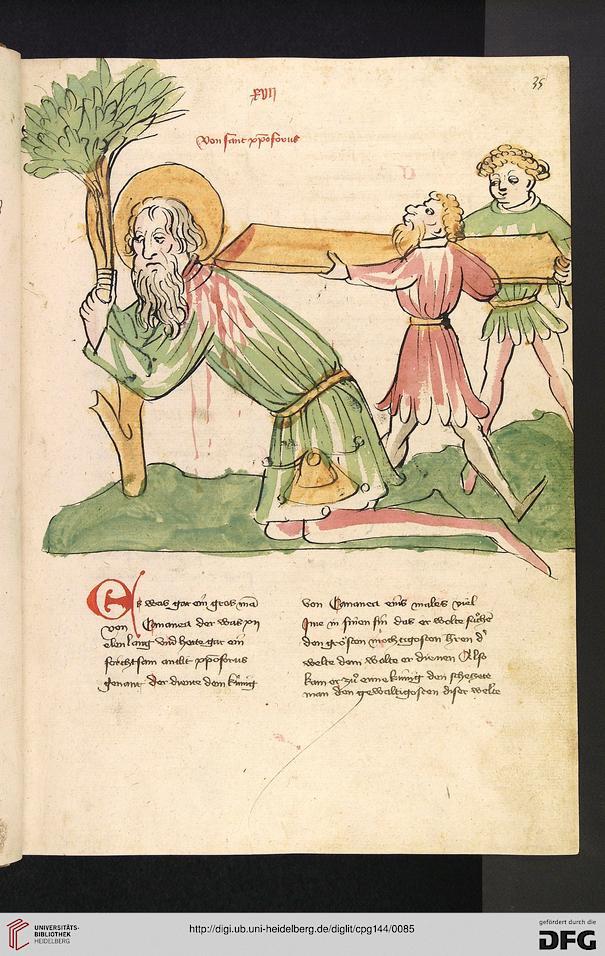 35
xvii
Von sant xpoforus
Es was gar ein gros man
von Cananea der was xii
elen lang vnd hette gar ein
forchtsam antlit xpoforus
genant der diente dem kúnig
von Cananea eins males viel
jme in sinen sin das er welte sůchen
den grösten mechtigosten herren der
welte dem wolte er dienen Also
kam er zů eime kúnig den schetzete
man den gewaltigosten diser welte
UNIVERSITÄTS-
BIBLIOTHEK
HEIDELBERG
http://digi.ub.uni-heidelberg.de/diglit/cpg144/0085
gefördert durch die
DFG